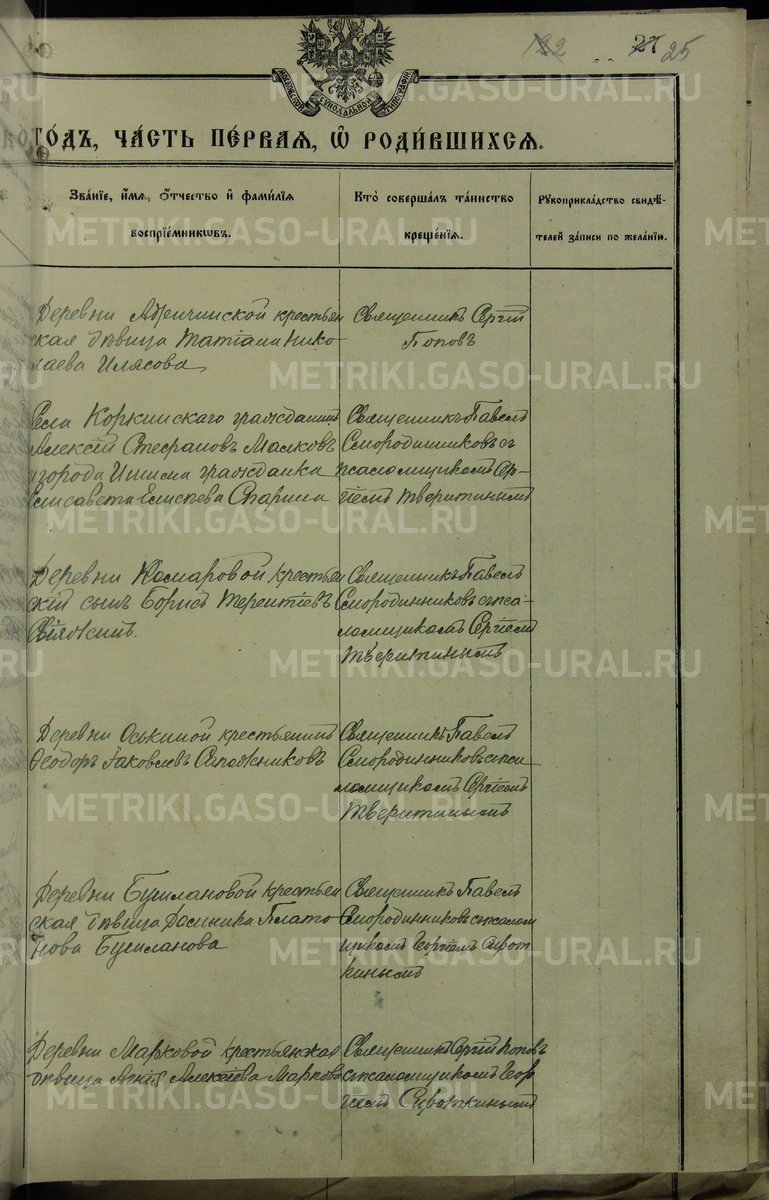 25
ГОДЪ, ЧАСТЬ ПЕРВАЯ, Ѡ РОДИВШИХСЯ.
Званіе, имя, отчество и фамилія
воспріемниковъ.
Кто совершалъ таинство
крещенія.
Рукоприкладство свидѣ-
телей записи по желанію.
Деревни крестьян
ская дѣвица Татіана Нико-
лаева Илясова
Священникъ Сергій
Поповъ
Села Коркинскаго гражданинъ
Алексій Стефановъ Малковъ
и города Ишима гражданка
Елисавета Елисеева
Священникъ Павелъ
Смородинниковъ съ
псаломщикомъ Сер-
гіемъ Тверитинымъ
Деревни Комаровой крестьян
скій сынъ Борисъ Терентіевъ
Священникъ Павелъ
Смородинниковъ съ пса-
ломщикомъ Сергіемъ
Тверитинымъ
Деревни Оськиной крестьянинъ
Ѳеодоръ Іаковлевъ Сапожниковъ
Священникъ Павелъ
Смородинниковъ съ пса
ломщикомъ Сергіемъ
Тверитинымъ
Деревни Бушлановой крестьян
ская дѣвица Домника Плато-
нова Бушланова
Священникъ Павелъ
Смородинниковъ съ псалом
щикомъ Георгіемъ Сирот
кинымъ
Деревни Марковой крестьянская
дѣвица Алексіева Маркова
Священникъ Сергій Поповъ
съ псаломщикомъ Геор
гіемъ Сироткинымъ
METRIKI.GASO-URAL.RU